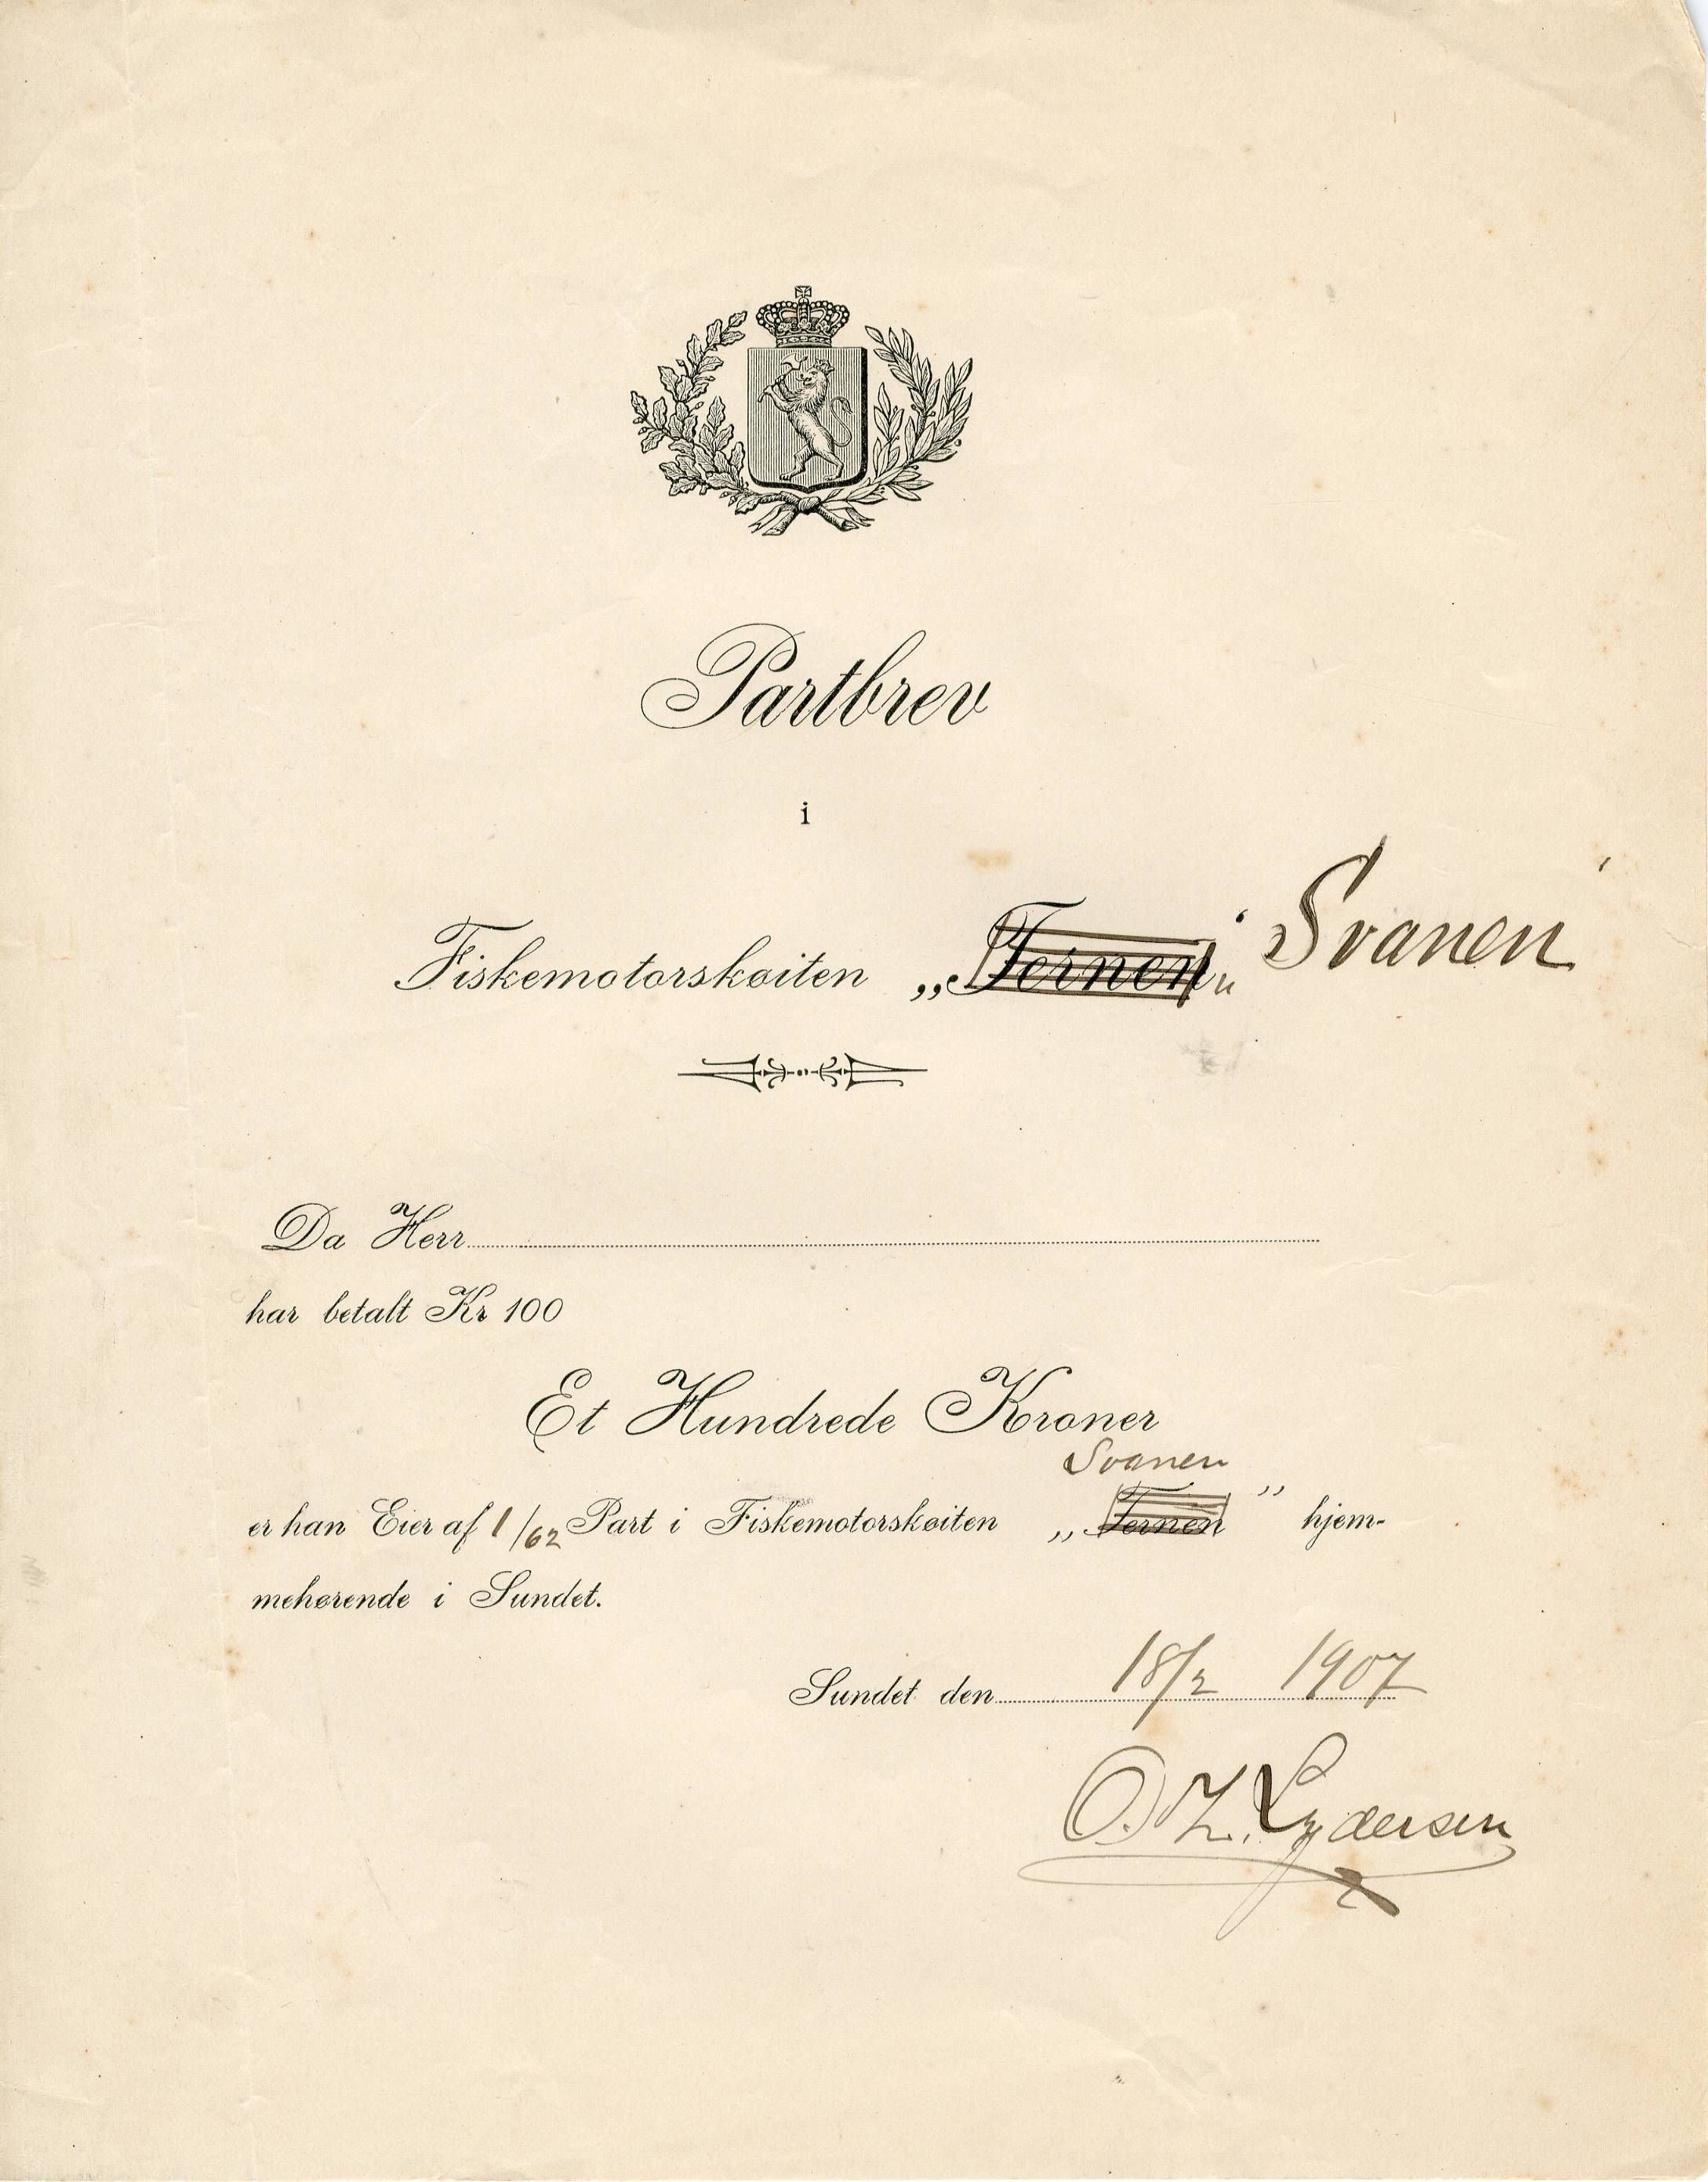 Partbrev
i
Fiskemotorskøiten „Ternen“ Svanen
Da Herr
har betalt Kr 100
Et Hundrede Kroner
Svanen
er han Eier af 1/62 Part i Fiskemotorskøiten „Ternen” hjem-
mehørende i Sundet.
Sundet den 18/2 1907
O. Z. Lydersen